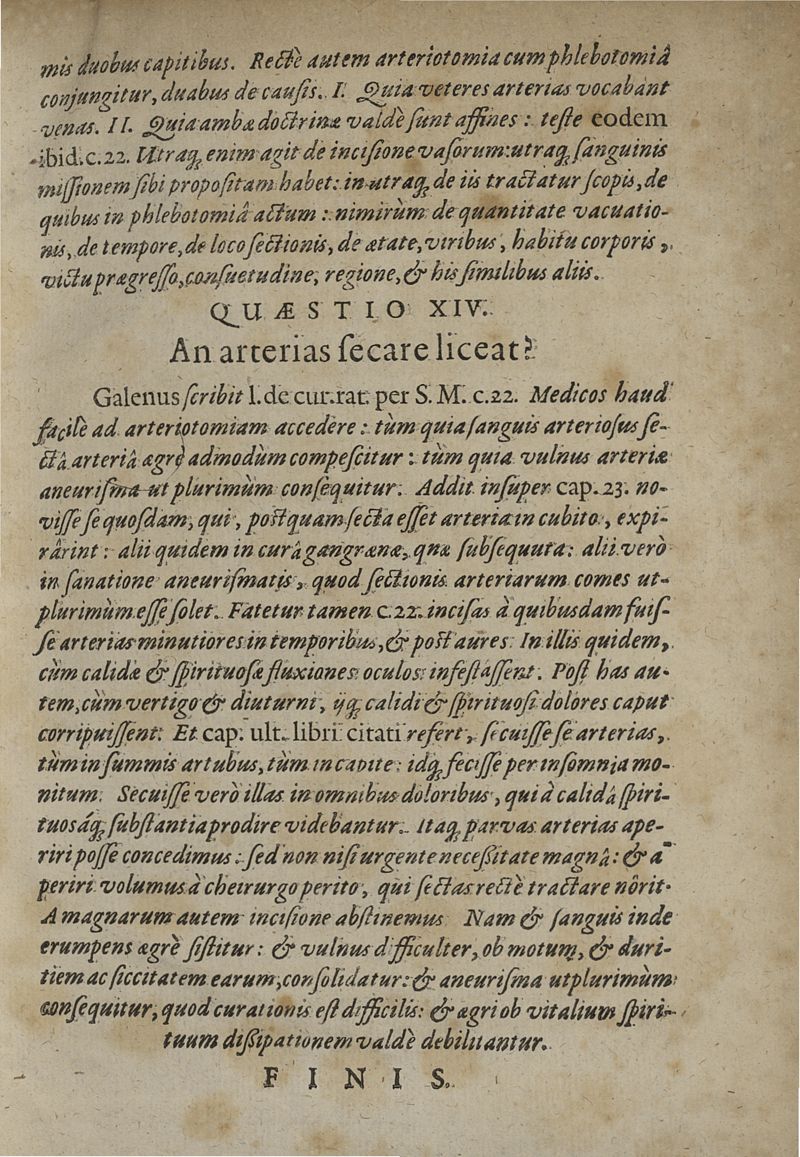 mis duobus capitibus. Rectè autem arteriotomia cum phlebotomiâ
conjungitur, duabus de causis. I. Quia veteres arterias vocabant
venas. II. Quia ambæ doctrinæ valdè sunt affines: teste eodem
ibid. c. 22. Utraq; enim agit de incisione vasorum: utraq; sanguinis
missionem sibi propositam habet: in utraq; de iis tractatur scopis, de
quibus in phlebotomiâ actum: nimirùm de quantitate vacuatio-
nis, de tempore, de loco sectionis, de ætate, viribus, habitu corporis,
victu prægresso, consuetudine, regione, & his similibus aliis.
QUÆSTIO XIV.
An arterias secare liceat?
Galenus scribit l. de cur. rat. per S. M. c. 22. Medicos haud
facilè ad arteriotomiam accedere: tùm quia sanguis arteriosus se-
ctâ arteriâ ægrè admodùm compescitur: tùm quia vulnus arteriæ
aneurisma ut plurimùm consequitur. Addit insuper cap. 23. no-
visse se quosdam, qui, postquam secta esset arteria in cubito, expi-
rârint: alii quidem in curâ gangrænæ, quæ subsequuta: alii verò
in sanatione aneurismatis, quod sectionis arteriarum comes ut-
plurimùm esse solet. Fatetur tamen c. 22. incisas à quibusdam fuis-
se arterias minutiores in temporibus, & post aures. In illis quidem,
cùm calidæ & spirituosæ fluxiones oculos infestassent. Post has au-
tem, cùm vertigo & diuturni, ijq; calidi & spirituosi dolores caput
corripuissent. Et cap. ult. libri citati refert, secuisse se arterias,
tùm in summis artubus, tùm in capite: idq; fecisse per insomnia mo-
nitum. Secuisse verò illas in omnibus doloribus, qui à calidâ spiri-
tuosáq; substantia prodire videbantur. Itaq; parvas arterias ape-
riri posse concedimus: sed non nisi urgente necessitate magnâ: & a-
periri volumus à cheirurgo perito, qui sectas rectè tractare nôrit.
A magnarum autem incisione abstinemus Nam & sanguis inde
erumpens ægrè sistitur: & vulnus difficulter, ob motum, & duri-
tiem ac siccitatem earum, consolidatur: & aneurisma utplurimùm
consequitur, quod curationis est difficilis: & ægri ob vitalium spiri-
tuum dissipationem valdè debilitantur.
FINIS.